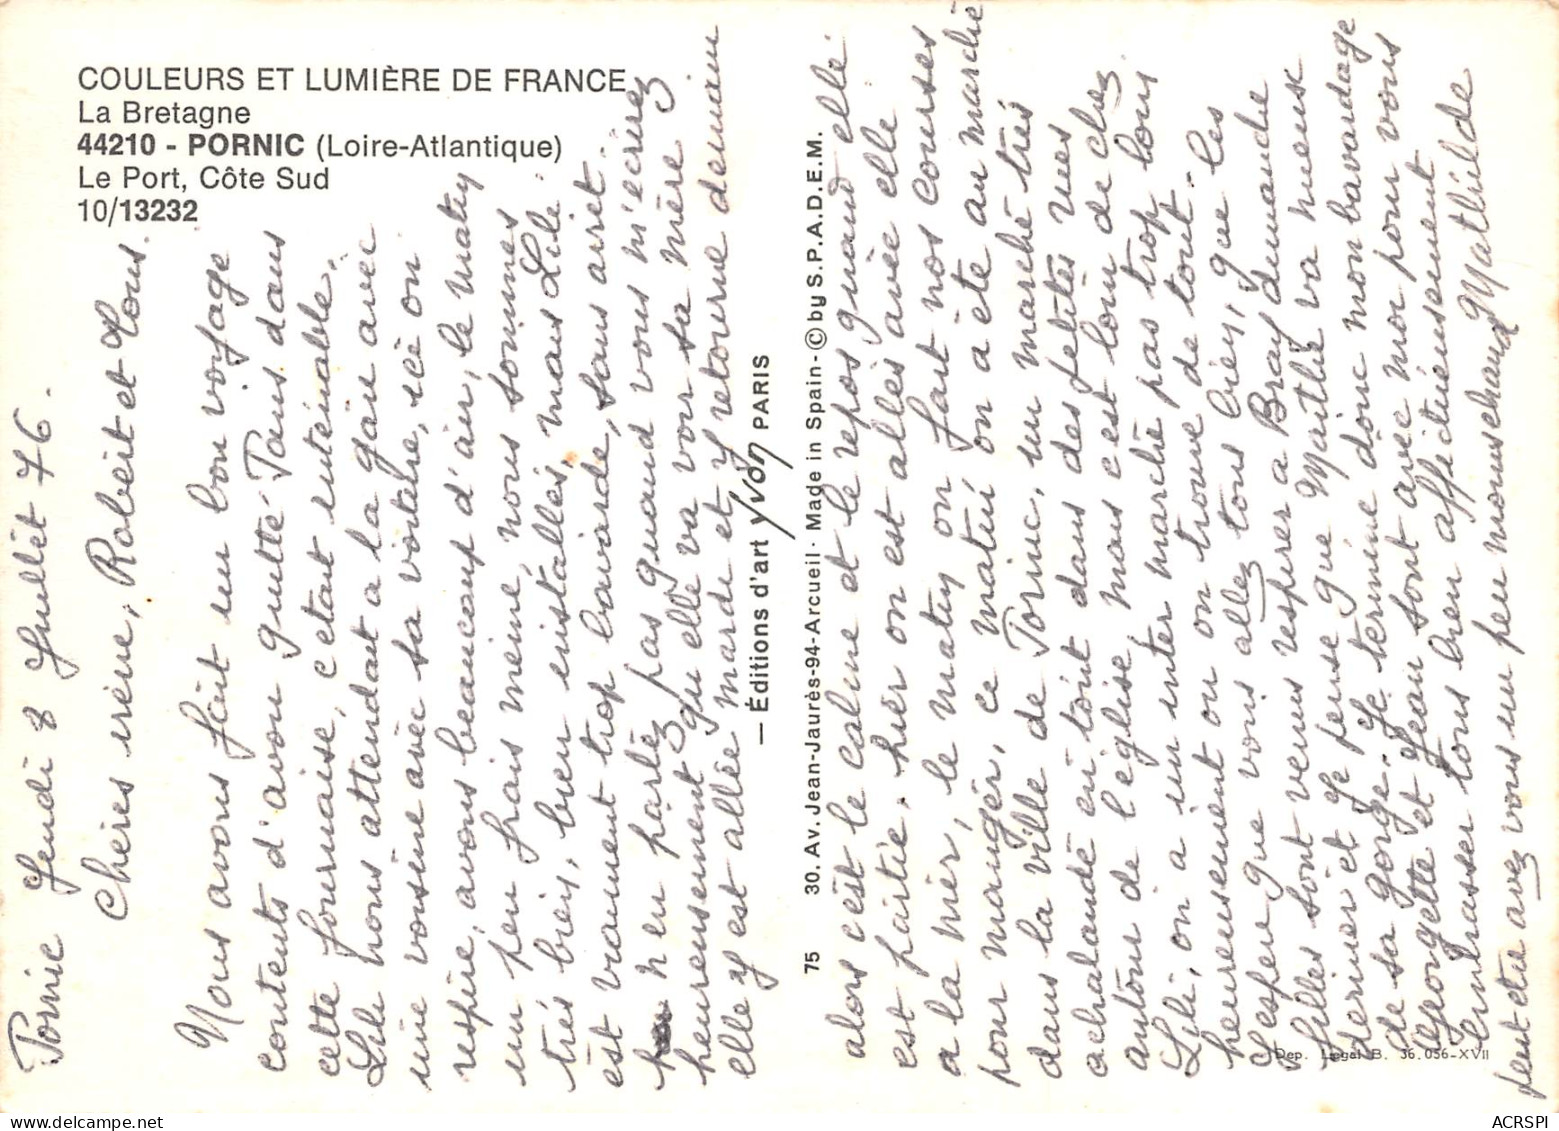 COULEURS ET LUMIÈRE DE FRANCE
La Bretagne
44210 - PORNIC (Loire-Atlantique)
Le Port, Côte Sud
10/13232
Pornic Jeudi 8 Juillet 76.
Chères irène, Robert et tous.
Nous avons fait un bon voyage
contents d'avoir quitté Paris dans
cette fournaise, c'était intenable.
Lili nous attendait a la gare avec
une voisine avec sa voiture, ici on
respire, avons beaucoup d'air, le matin
un peu frais meme, nous sommes
très bien, bien installés, mais Lili
est vraiment trop bavarde, sans arret.
n'en parlez pas quand vous m'ecrirez
heureusement qu'elle va voir sa mère
elle y est allée mardi et y retourne demain
— Éditions d'art yvon PARIS
75 30. Av. Jean-Jaurès-94-Arcueil · Made in Spain - © by S.P.A.D.E.M.
alors c'est le calme et le repos quand elle
est partie, hier on est allés avec elle
a la mer, le matin on fait nos courses
pour manger, ce matin on a été au marché
dans la ville de Pornic, un marché très
achalandé en tout dans des petites rues
autour de l'église, mais c'est loin de chez
Lili, on a un inter marché pas trop loin
heureusement ou on trouve de tout.
J'espère que vous allez tous bien, que les
filles sont venus respirer a Bray dimanche
dernier et je pense que Marthe va mieux
de sa gorge. Je termine donc mon bavardage
Georgette et Jean sont avec moi pour vous
embrasser tous bien affectueusement
Mathilde
peut etre avez vous un peu moins chaud
Dep. Legal B. 36.056-XVII
ACRSPI